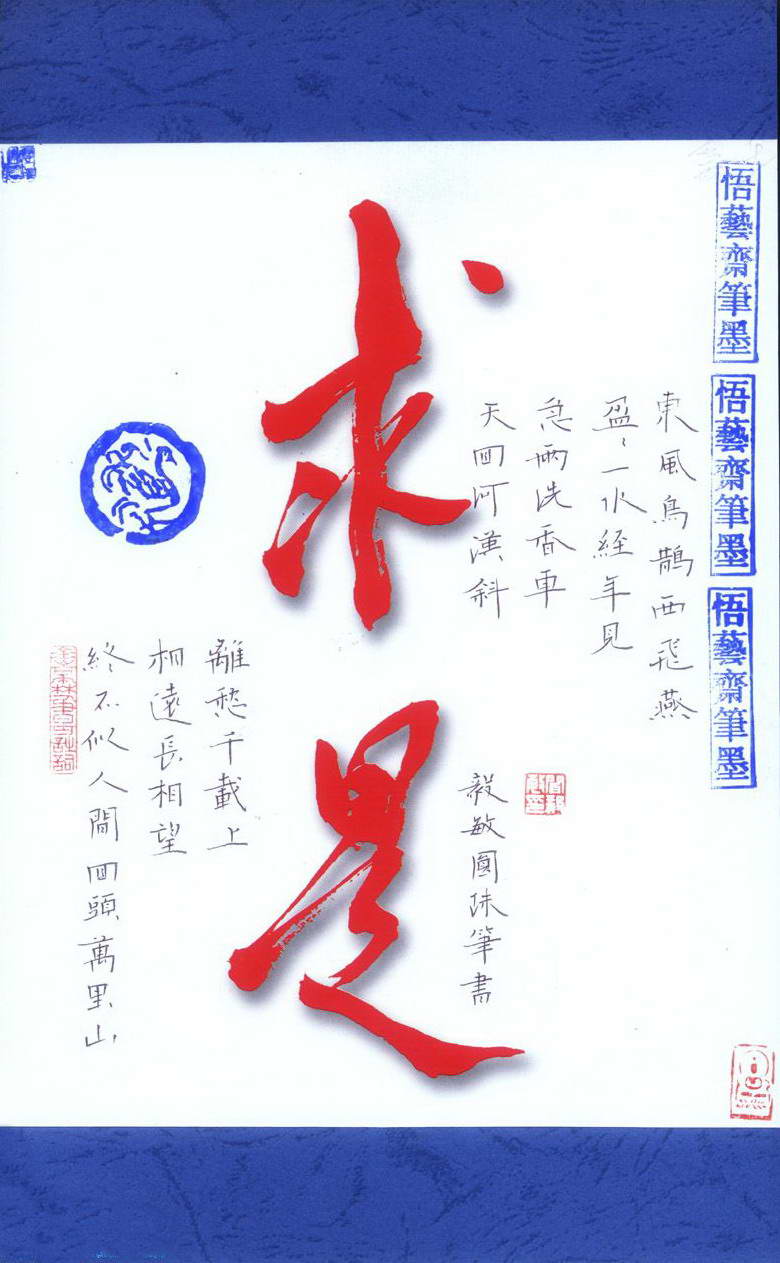 悟藝齋筆墨
悟藝齋筆墨
悟藝齋筆墨
東風鳥鵲西飛燕
盈、一水經年見
急雨洗香車
天囬河漢斜
求是
離愁千載上
相遠長相望
終不似人間囬頭萬里山
毅敏圓珠筆書